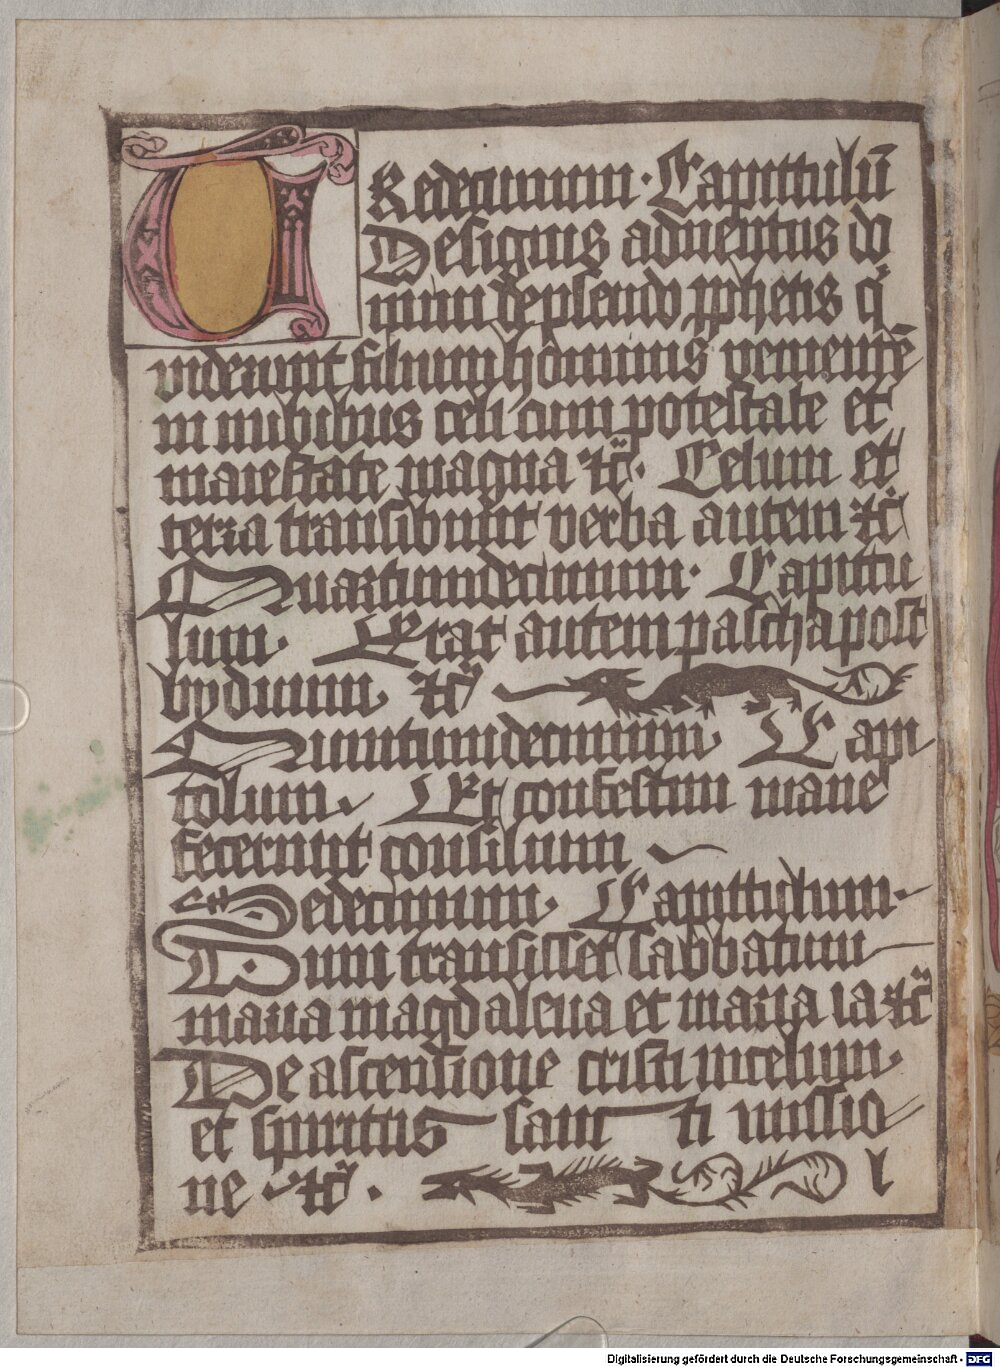 TRedecimum. Capittulū
De signis aduentus do
mini de pseudo pphetis q̄
viderunt filium hominis venientē
in nubibus celi cum potestate et
maiestate magna ⁊c̄. Celum et
terra transibunt verba autem ⁊c̄
Quartumdecimum. Capittu
lum. Erat autem pascha post
byduum ⁊c̄
Quintumdecimum Capi
tolum. Et confestim mane
fecerunt consilium
Sedecimum. Capittulum
Dum transisset sabbatum
maria magdalena et maria ia ⁊c̄
De ascensione cristi in celum.
et spiritus san ti missio
ne ⁊c̄. l
Digitalisierung gefördert durch die Deutsche Forschungsgemeinschaft - DFG